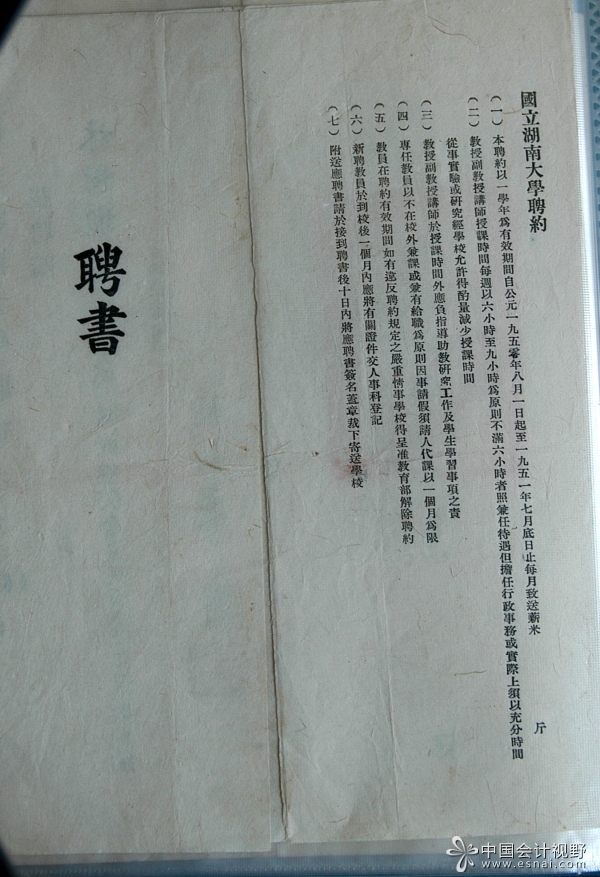 國立湖南大學聘約
（一）本聘約以一學年爲有效期間自公元一九五零年八月一日起至一九五一年七月底日止每月致送薪米　　斤
（二）教授副教授講師授課時間每週以六小時至九小時爲原則不滿六小時者照兼任待遇但擔任行政事務或實際上須以充分時間
從事實驗或研究經學校允許得酌量減少授課時間
（三）教授副教授講師於授課時間外應負指導助教研究工作及學生學習事項之責
（四）專任教員以不在校外兼課或兼有給職爲原則因事請假須請人代課以一個月爲限
（五）教員在聘約有效期間如有違反聘約規定之嚴重情事學校得呈准教育部解除聘約
（六）新聘教員於到校後一個月內應將有關證件交人事科登記
（七）附送應聘書請於接到聘書後十日內將應聘書簽名蓋章裁下寄送學校
聘書
中国会计视野
www.esnai.com